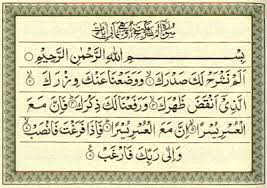 سورة
بِسْمِ اللهِ الرَّحْمٰنِ الرَّحِيْمِ
اَلَمْ نَشْرَحْ لَكَ صَدْرَكَ وَوَضَعْنَا عَنْكَ وِزْرَكَ
الَّذِيْ اَنْقَضَ ظَهْرَكَ وَرَفَعْنَا لَكَ ذِكْرَكَ فَاِنَّ مَعَ
الْعُسْرِ يُسْرًا اِنَّ مَعَ الْعُسْرِ يُسْرًا فَاِذَا فَرَغْتَ فَانْصَبْ
وَاِلٰى رَبِّكَ فَارْغَبْ